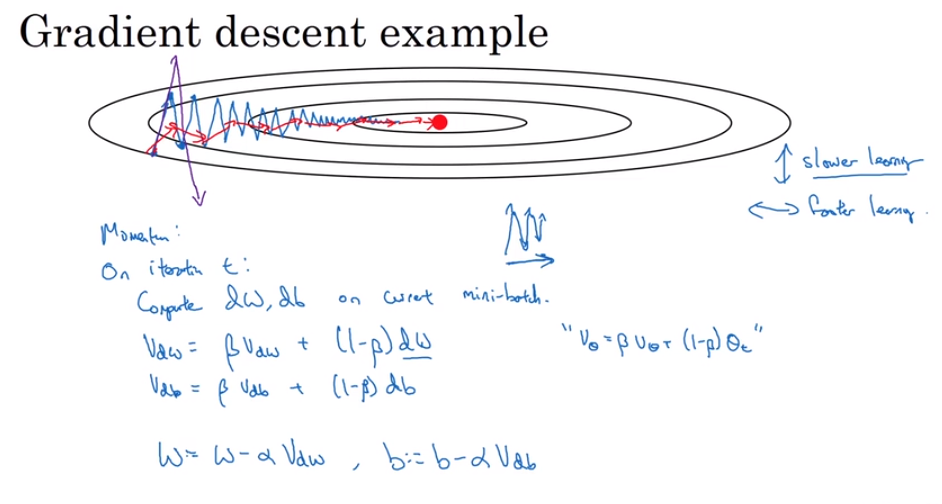 Gradient descent example
slower learning
faster learning
Momentum:
On iteration t:
Compute dW, db on current mini-batch.
Vdw = β Vdw + (1-β) dW
"Vθ = β Vθ + (1-β) θt"
Vdb = β Vdb + (1-β) db
W := W - α Vdw , b := b - α Vdb